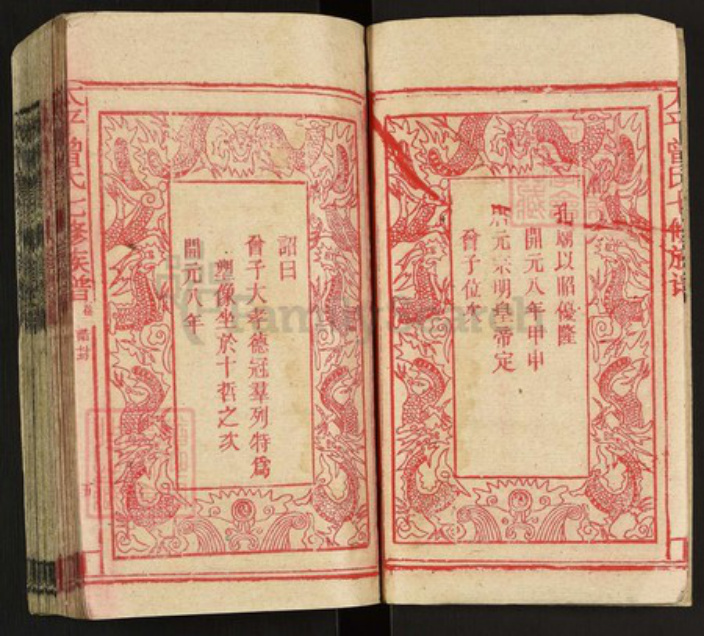 孔廟以昭優隆
開元八年甲申
唐元宗明皇帝定
曾子位次
詔曰
曾子大孝德冠羣列特為
塑像坐於十哲之次
開元八年
太平曾氏七修族譜
卷 誥封
FamilySearch